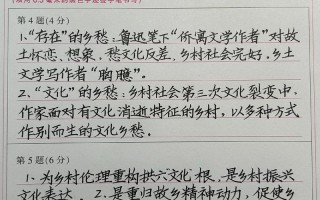 第4题(4分)
1."存在"的乡愁：鲁迅笔下"侨寓文学作者"对故
土怀恋、想象，愁文化反差，乡村社会完好。乡土
文学写作者"胸臆"。
2."文化"的乡愁：乡村社会第三次文化裂变中，
作家面对有文化消逝特征的乡村，以多种方式
作别而生的文化乡愁。
第5题(6分)
1.为乡村伦理重构拱文化根，是乡村振兴
文化表达。2.是重归故乡精神动力，促使乡